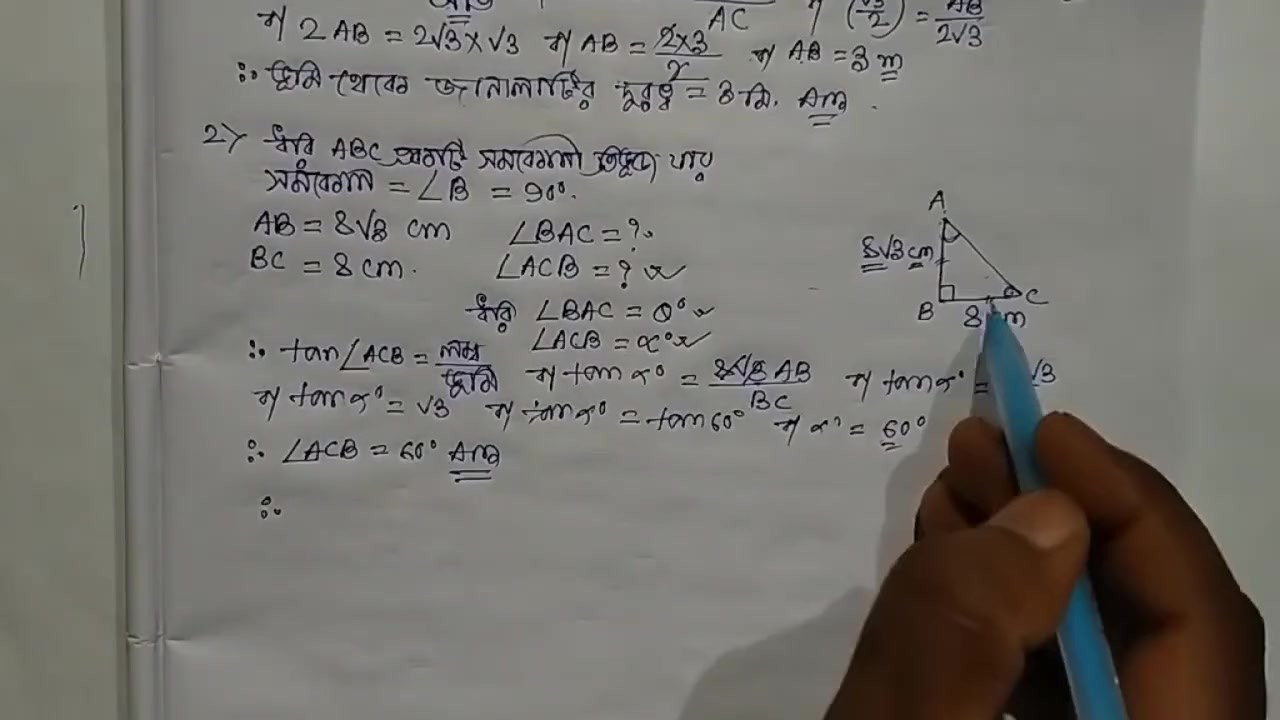 AC
বা (√3/2) = AB/2√3
বা 2AB = 2√3×√3 বা AB = 2×3/2 বা AB = 3 m
∴ ভূমি থেকে জানালাটির দূরত্ব = 3 মি. Ans.
2> ধরি ABC একটি সমকোণী ত্রিভুজ যার
সমকোণ = ∠B = 90°.
AB = 8√3 cm ∠BAC = ?
BC = 8 cm. ∠ACB = ?
ধরি ∠BAC = θ°
∠ACB = α°
∴ tan∠ACB = লম্ব/ভূমি বা tan α° = AB/BC বা tan α° = √3
বা tan α° = √3 বা tan α° = tan 60° বা α° = 60°
∴ ∠ACB = 60° Ans
∴
A
8√3 cm
B
C
8 m